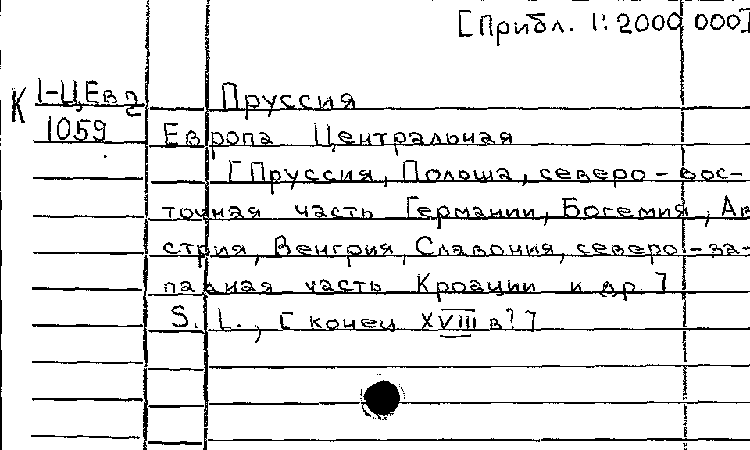 [Прибл. 1:2000 000]
К 1-ЦЕв 2 Пруссия
1059 Европа Центральная
[Пруссия, Полоша, северо-вос-
точная часть Германии, Богемия, Ав
стрия, Венгрия, Славония, северо-за-
падная часть Кроации и др]
S. L., [конец XVIII в?]